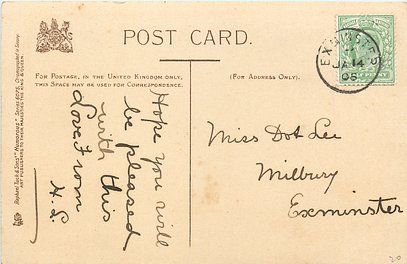 POST CARD.
FOR POSTAGE, IN THE UNITED KINGDOM ONLY,
THIS SPACE MAY BE USED FOR CORRESPONDENCE.
(FOR ADDRESS ONLY).
EXMINSTER
JA 14
05
Hope you will
be pleased
with this
Love from
H. L.
Miss Dot Lee
Milbury
Exminster
Raphael Tuck & Sons'
ART PUBLISHERS TO THEIR MAJESTIES THE KING & QUEEN.